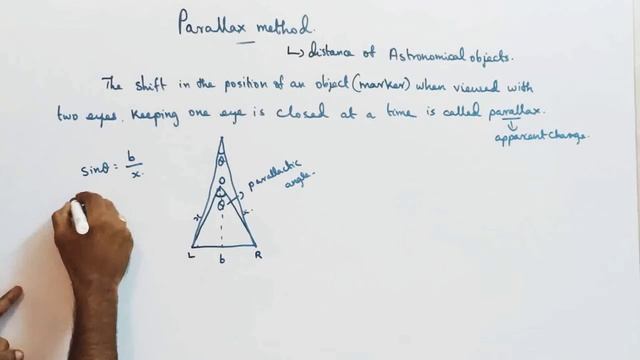 Parallax method.
↳ distance of Astronomical objects.
The shift in the position of an object (marker) when viewed with
two eyes, keeping one eye is closed at a time is called parallax.
apparent change.
sinθ = b/x.
θ
O
θ
parallactic
angle.
x x
L b R